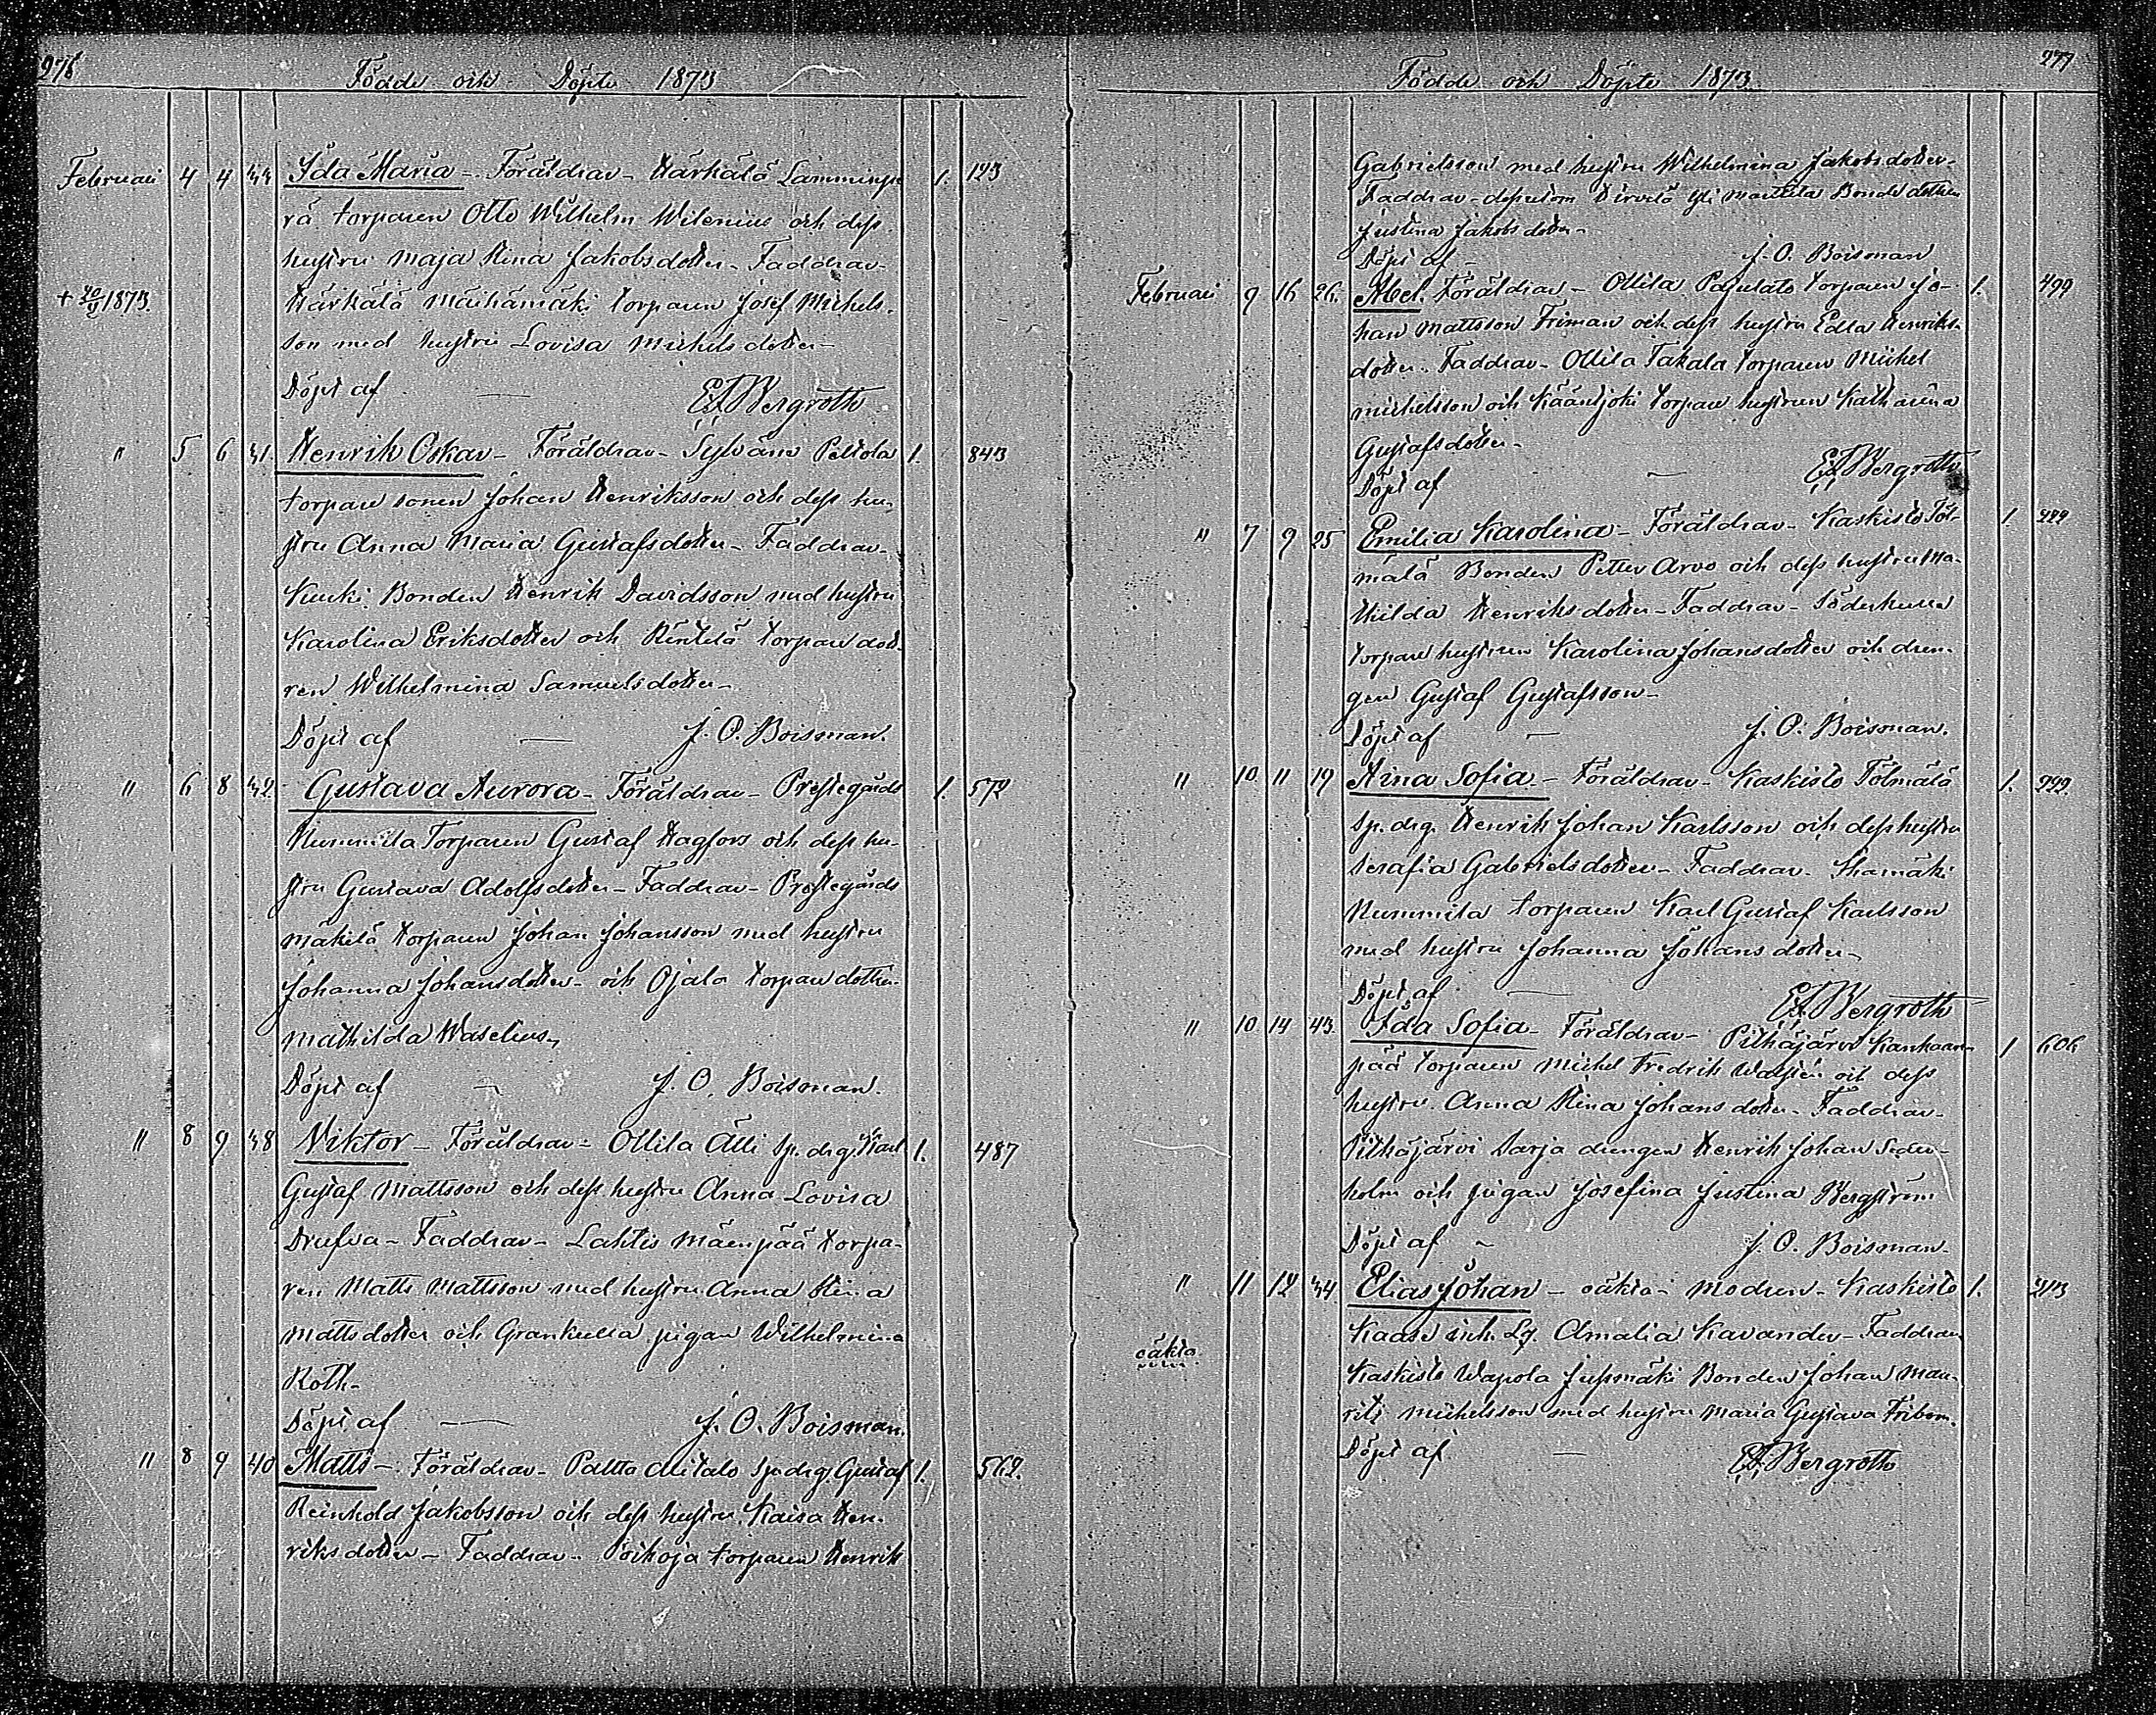 276
Födde och Döpte 1873
Februari 4 4 44 Ida Maria - Föräldrar - Härkälä Lamminpe 1. 123
rä torparen Otto Wilhelm Wilenius och dess
hustru Maja Stina Jakobsdotter - Faddrar -
+ 1873. Härkälä torparen Josef Michels-
son med hustru Lovisa Michelsdotter -
Döpt af — Bergroth
" 5 6 41. Henrik Oskar - Föräldrar - Sylvänä Peltola 1. 843
torpare sonen Johan Henriksson och dess hu-
stru Anna Maria Gustafsdotter - Faddrar -
Kurki Bonden Henrik Davidsson med hustru
Karolina Eriksdotter och Rintelä torpare dott-
ren Wilhelmina Samuelsdotter -
Döpt af — J. O. Boisman.
" 6 8 42. Gustava Aurora - Föräldrar - Prestegårds 1. 572
Nummila Torparen Gustaf Hagfors och dess hu-
stru Gustava Adolfsdotter - Faddrar - Prestegårds
Mäkilä torparen Johan Johansson med hustru
Johanna Johansdotter - och Ojala torpare dottren
Mathilda Waselius -
Döpt af - J. O. Boisman.
" 8 9 38 Viktor - Föräldrar - Ollila Älli Sp. drg. Karl 1. 487
Gustaf Mattsson och dess hustru Anna Lovisa
Drufva - Faddrar - Lahtis Mäenpää torpa-
ren Matts Mattsson med hustru Anna Stina
Mattsdotter och Grankulla pigan Wilhelmina
Roth -
Döpt af — J. O. Boisman.
" 8 9 40 Matts - Föräldrar - Paltta Alitalo Sp. drg. Gustaf 1. 562.
Reinhold Jakobsson och dess hustru Kaisa Hen-
riksdotter - Faddrar - torparen Henrik
277
Födde och Döpte 1873
Gabrielsson med hustru Wilhelmina Jakobsdotter -
Faddrar - Hirvelä Yli Marttila Bonde dottren
Justina Jakobsdotter -
Döpt af - J. O. Boisman
Februari 9 16 26. Abel. Föräldrar - Ollila torparen Jo- 1. 499
han Mattsson Friman och dess hustru Edla Henriks-
dotter. Faddrar - Ollila Takala torparen Michel
Michelsson och Kääntjoki torpare hustrun Katharina
Gustafsdotter -
Döpt af — Bergroth
" 7 9 25 Emilia Karolina - Föräldrar - Kaskisto Töl- 1. 222
mälä Bonden Petter Arvo och dess hustru Ma-
thilda Henriksdotter - Faddrar - Söderkulla
torpare hustrun Karolina Johansdotter och dren-
gen Gustaf Gustafsson -
Döpt af - J. O. Boisman.
" 10 11 19 Nina Sofia - Föräldrar - Kaskisto Tölmälä 1. 222.
Sp. drg. Henrik Johan Karlsson och dess hustru
Serafia Gabrielsdotter - Faddrar -
Nummila torparen Karl Gustaf Karlsson
med hustru Johanna Johansdotter -
Döpt af — Bergroth
" 10 14 43. Ida Sofia - Föräldrar - Pitkäjärvi Kankaan- 1 606
pää torparen Michel Fredrik och dess
hustru Anna Stina Johansdotter - Faddrar -
Pitkäjärvi Sarja drengen Henrik Johan Söder-
holm och pigan Josefina Justina Bergström
Döpt af - J. O. Boisman.
" 11 12 44 Elias Johan - oäkta - modren - Kaskisto 1. 213
Kaase inh. Lg. Amalia Kavander - Faddrar
oäkta. Kaskisto Wapola Jussmäki Bonden Johan Mau-
ritz Michelsson med hustru Maria Gustava Fribom.
Döpt af — Bergroth